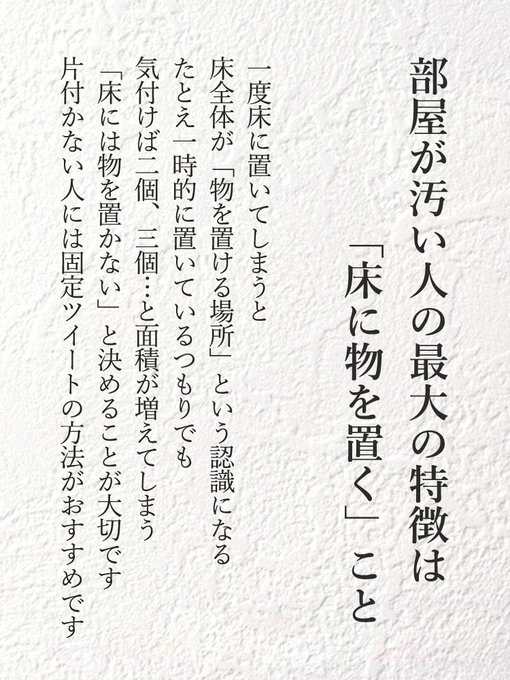 部屋が汚い人の最大の特徴は
「床に物を置く」こと
一度床に置いてしまうと
床全体が「物を置ける場所」という認識になる
たとえ一時的に置いているつもりでも
気付けば二個、三個…と面積が増えてしまう
「床には物を置かない」と決めることが大切です
片付かない人には固定ツイートの方法がおすすめです